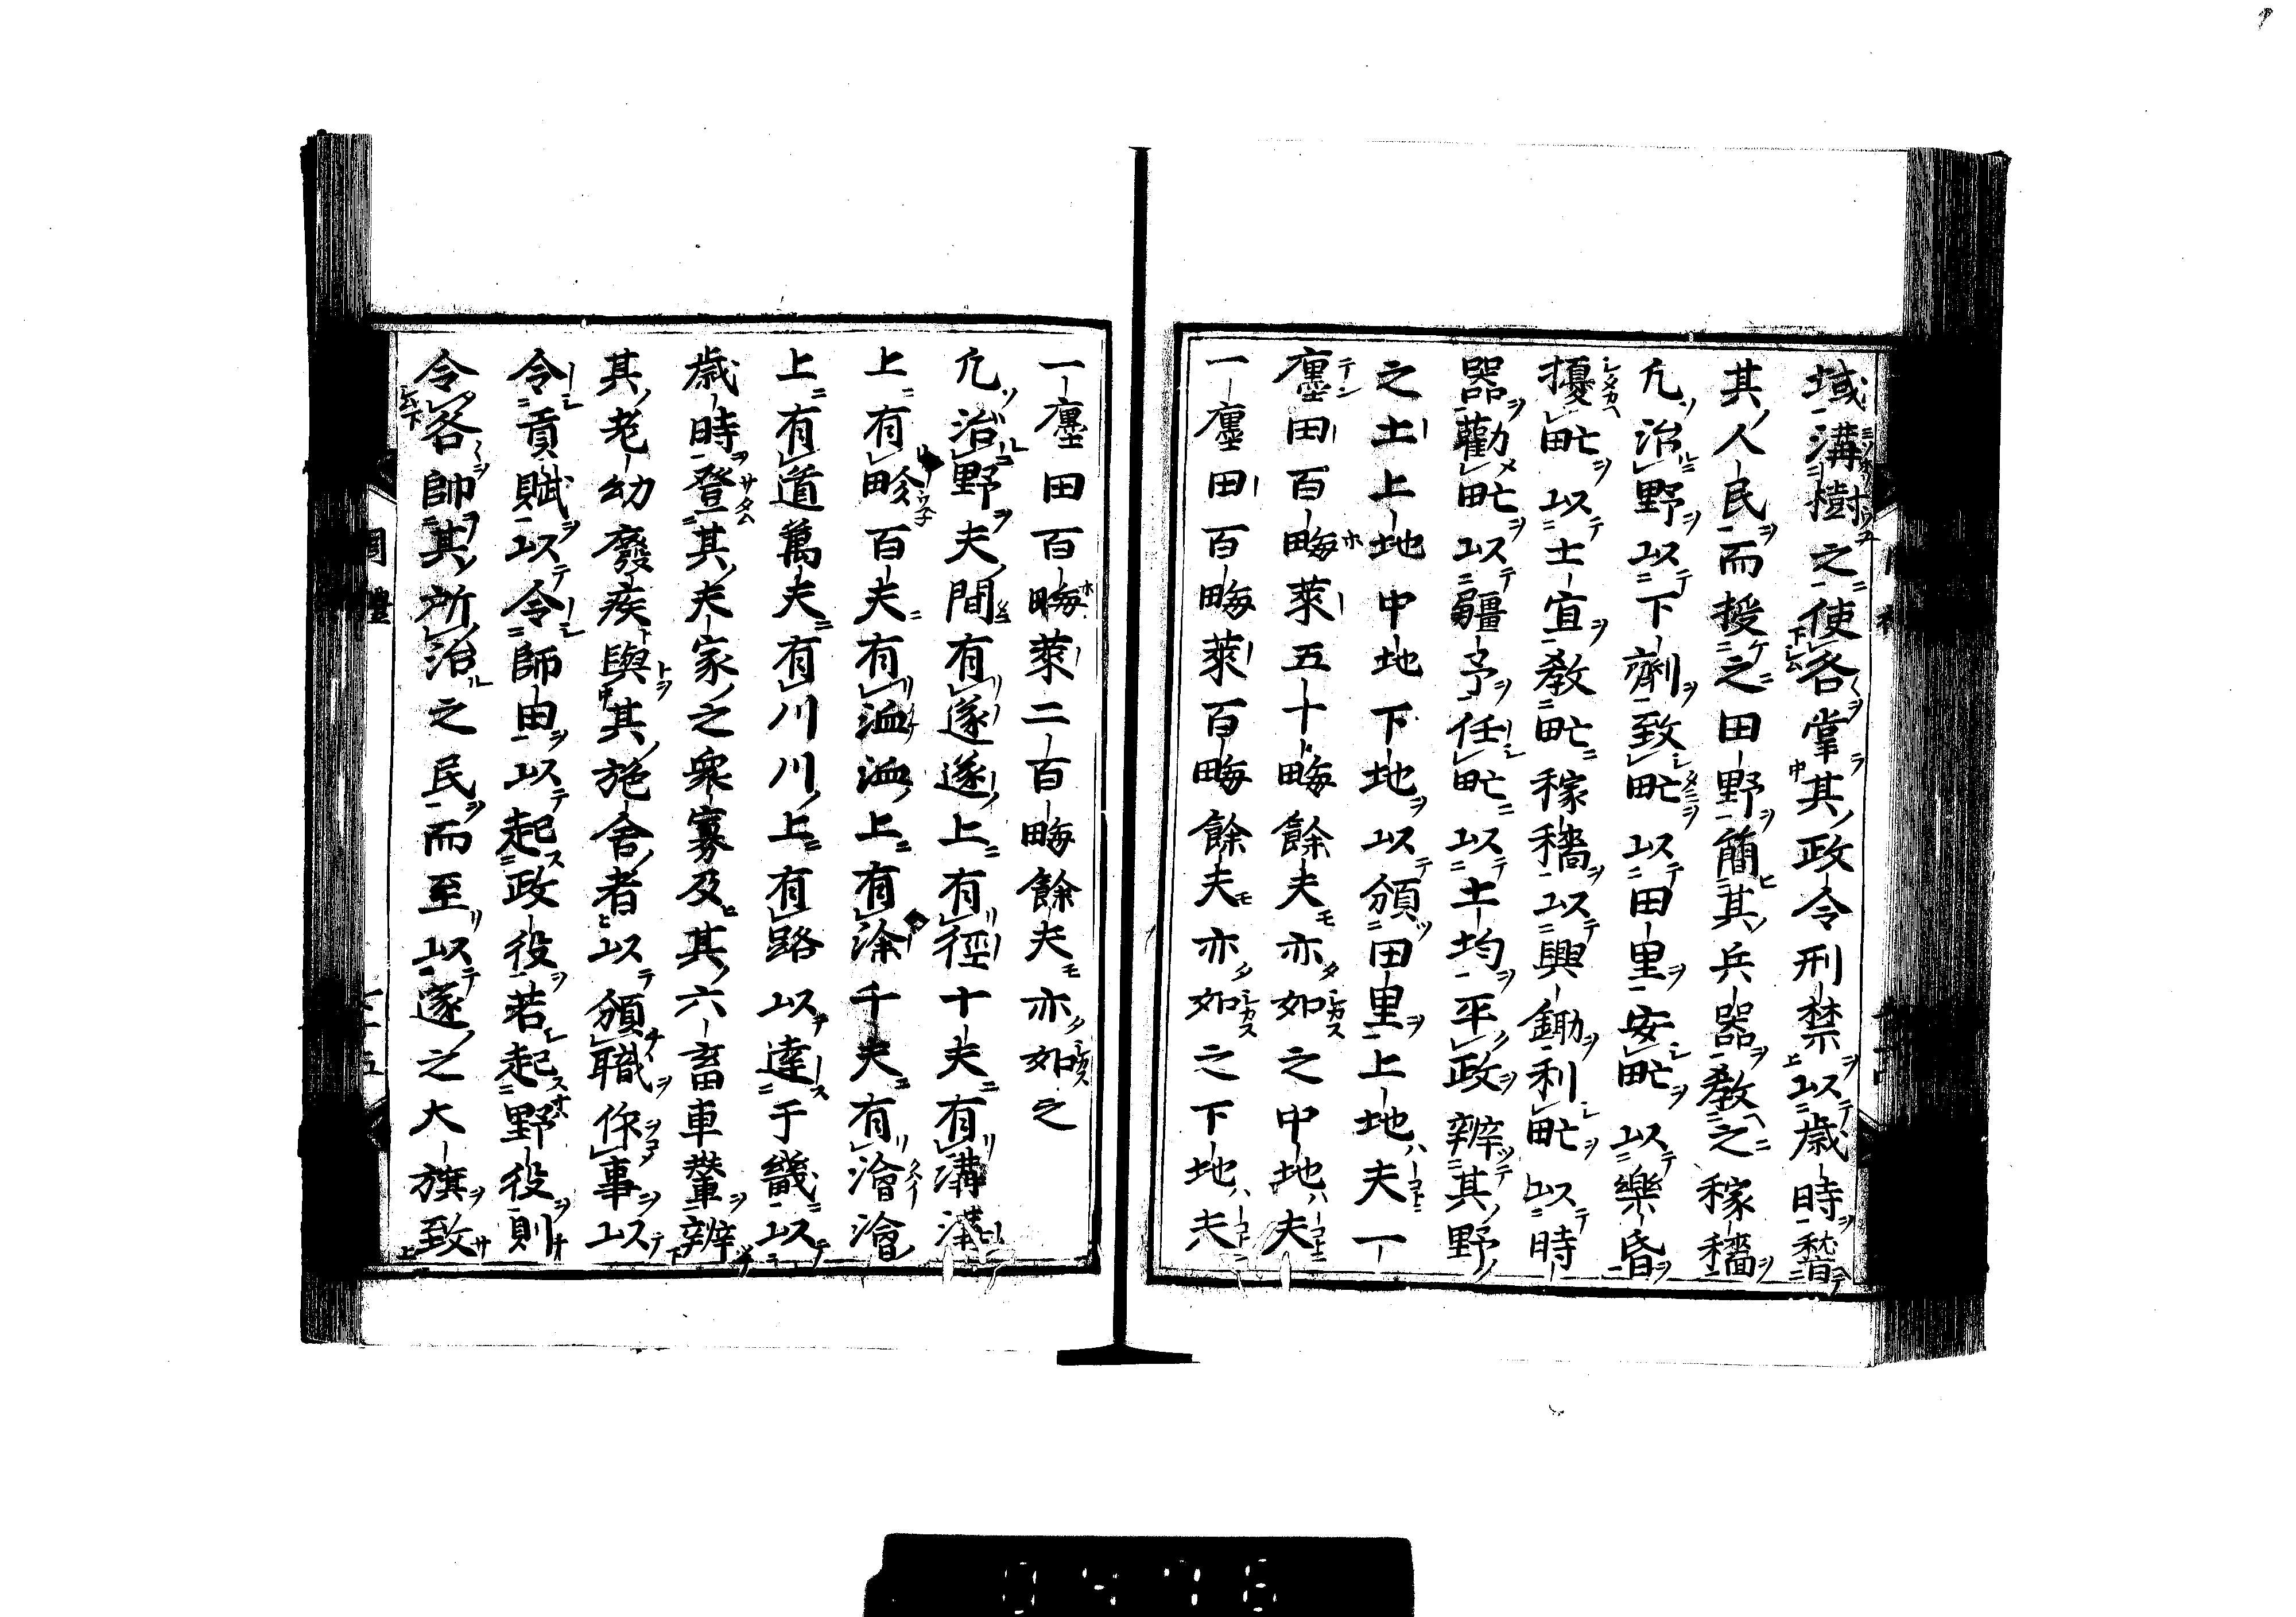 域溝樹之使各掌其政令刑禁以歳時稽
其人民而授之田野簡其兵器教之稼穡
凢治野以下劑致甿以田里安甿以樂昏
擾甿以土宜教甿稼穡以興鋤利甿以時
器勸甿以彊予任甿以土均平政辨其野
之土上地中地下地以頒田里上地夫一
廛田百畮萊五十畮餘夫亦如之中地夫
一廛田百畮萊百畮餘夫亦如之下地夫
一廛田百畮萊二百畮餘夫亦如之
凢治野夫間有遂遂上有徑十夫有溝溝
上有畛百夫有洫洫上有涂千夫有澮澮
上有道萬夫有川川上有路以達于畿以
歳時登其夫家之衆寡及其六畜車輦辨
其老幼廢疾與其施舍者以頒職作事以
令貢賦以令師田以起政役若起野役則
令各帥其所治之民而至以遂之大旗致